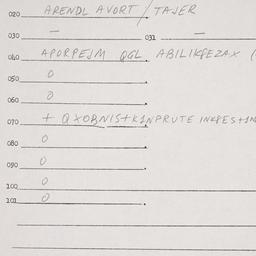 020 ARENDL AVORT / TAJER
030 — 031 —
040 APORPEJM QGL. ABILIKFEZAX (
050 0
060 0
070 + QXOBNIS+K1NPRUTE
080 0
090 0
100 0
101 0